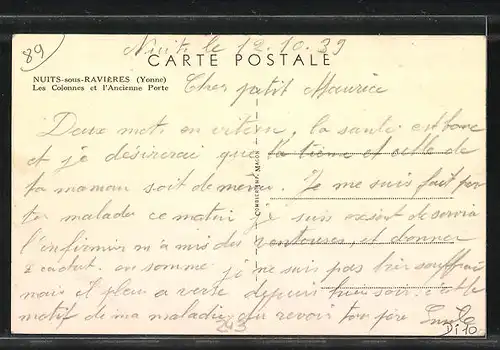 89
Nuits le 12.10.39
CARTE POSTALE
NUITS-sous-RAVIÈRES (Yonne)
Les Colonnes et l'Ancienne Porte
Cher petit Maurice
Deux mots en vitesse, la santé est bonne
et je désirerai que la tienne et celle de
ta maman soit de même. Je me suis fait porter
malade ce matin je suis exempt de service
l'infirmier m'a mis des ventouses, et donner
2 cachet. en somme je ne suis pas bien souffrant
mais il pleu a verse depuis hier soir. c'est le
motif de ma maladie, au revoir ton père Emile
COMBIER IMP. MACON
243
Di 10